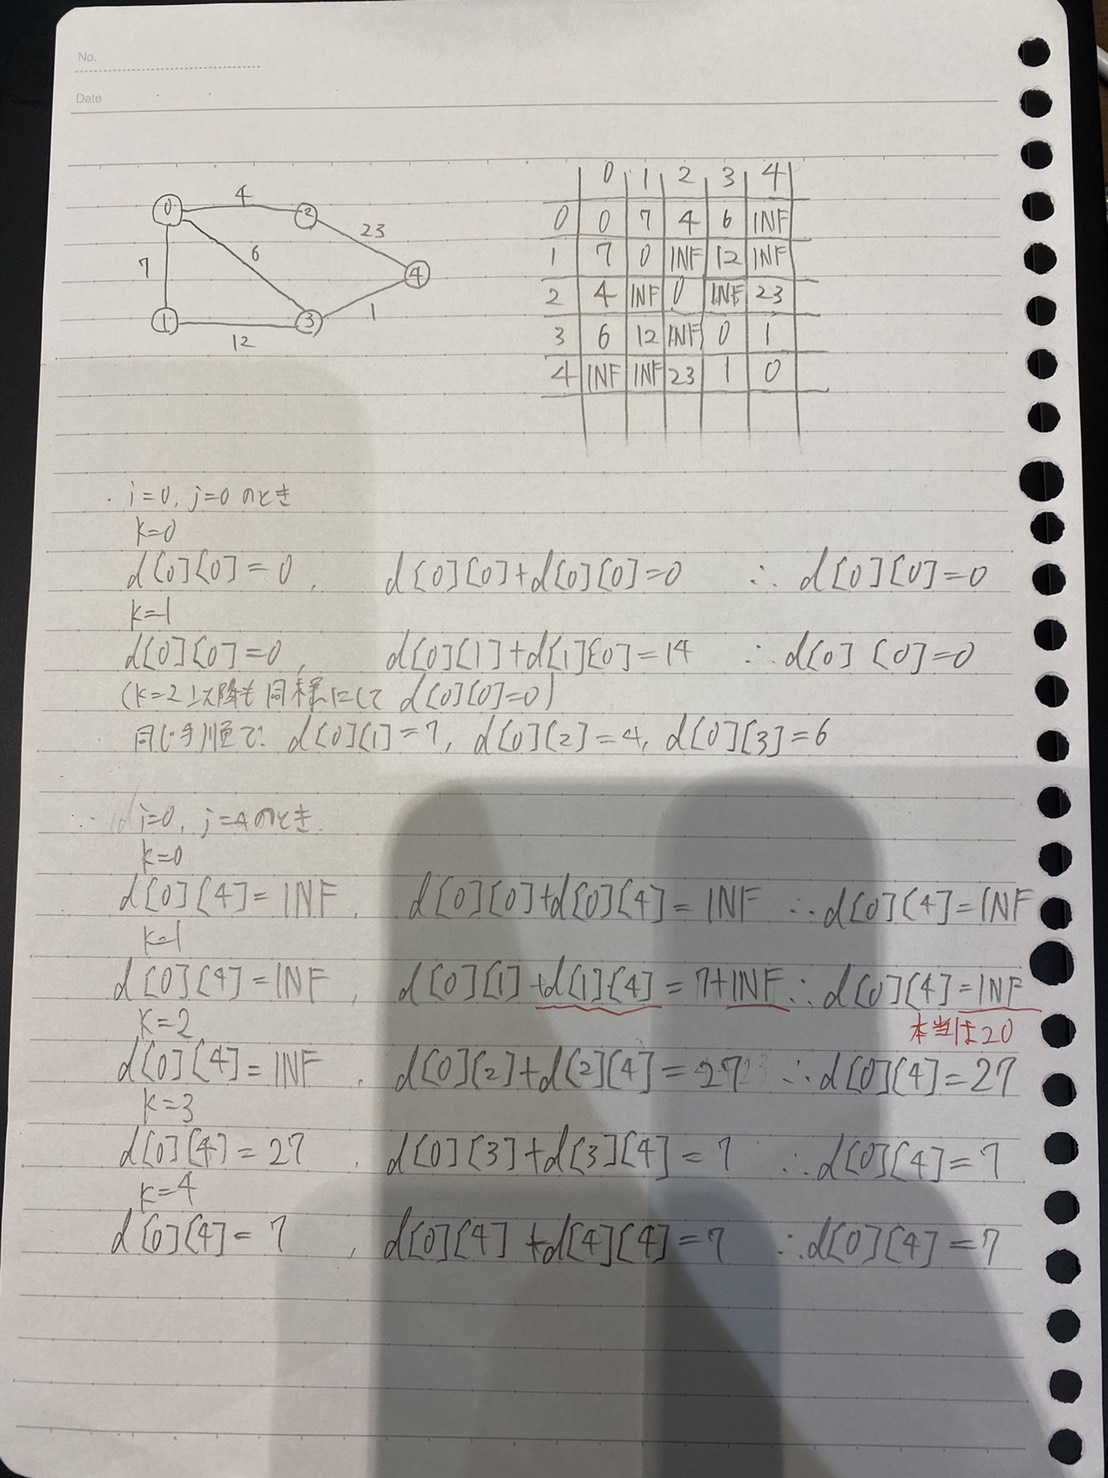 No.
Date
0 1 2 3 4
0 0 7 4 6 INF
1 7 0 INF 12 INF
2 4 INF 0 INF 23
3 6 12 INF 0 1
4 INF INF 23 1 0
0 4 2
23
7 6 4
1 12 3 1
・i=0, j=0 のとき
k=0
d[0][0]=0, d[0][0]+d[0][0]=0 ∴d[0][0]=0
k=1
d[0][0]=0, d[0][1]+d[1][0]=14 ∴d[0][0]=0
(k=2以降も同様にして d[0][0]=0)
同じ手順で d[0][1]=7, d[0][2]=4, d[0][3]=6
i=0, j=4のとき
k=0
d[0][4]=INF, d[0][0]+d[0][4]=INF ∴d[0][4]=INF
k=1
d[0][4]=INF, d[0][1]+d[1][4]=7+INF ∴d[0][4]=INF
本当は20
k=2
d[0][4]=INF, d[0][2]+d[2][4]=27 ∴d[0][4]=27
k=3
d[0][4]=27, d[0][3]+d[3][4]=7 ∴d[0][4]=7
k=4
d[0][4]=7, d[0][4]+d[4][4]=7 ∴d[0][4]=7